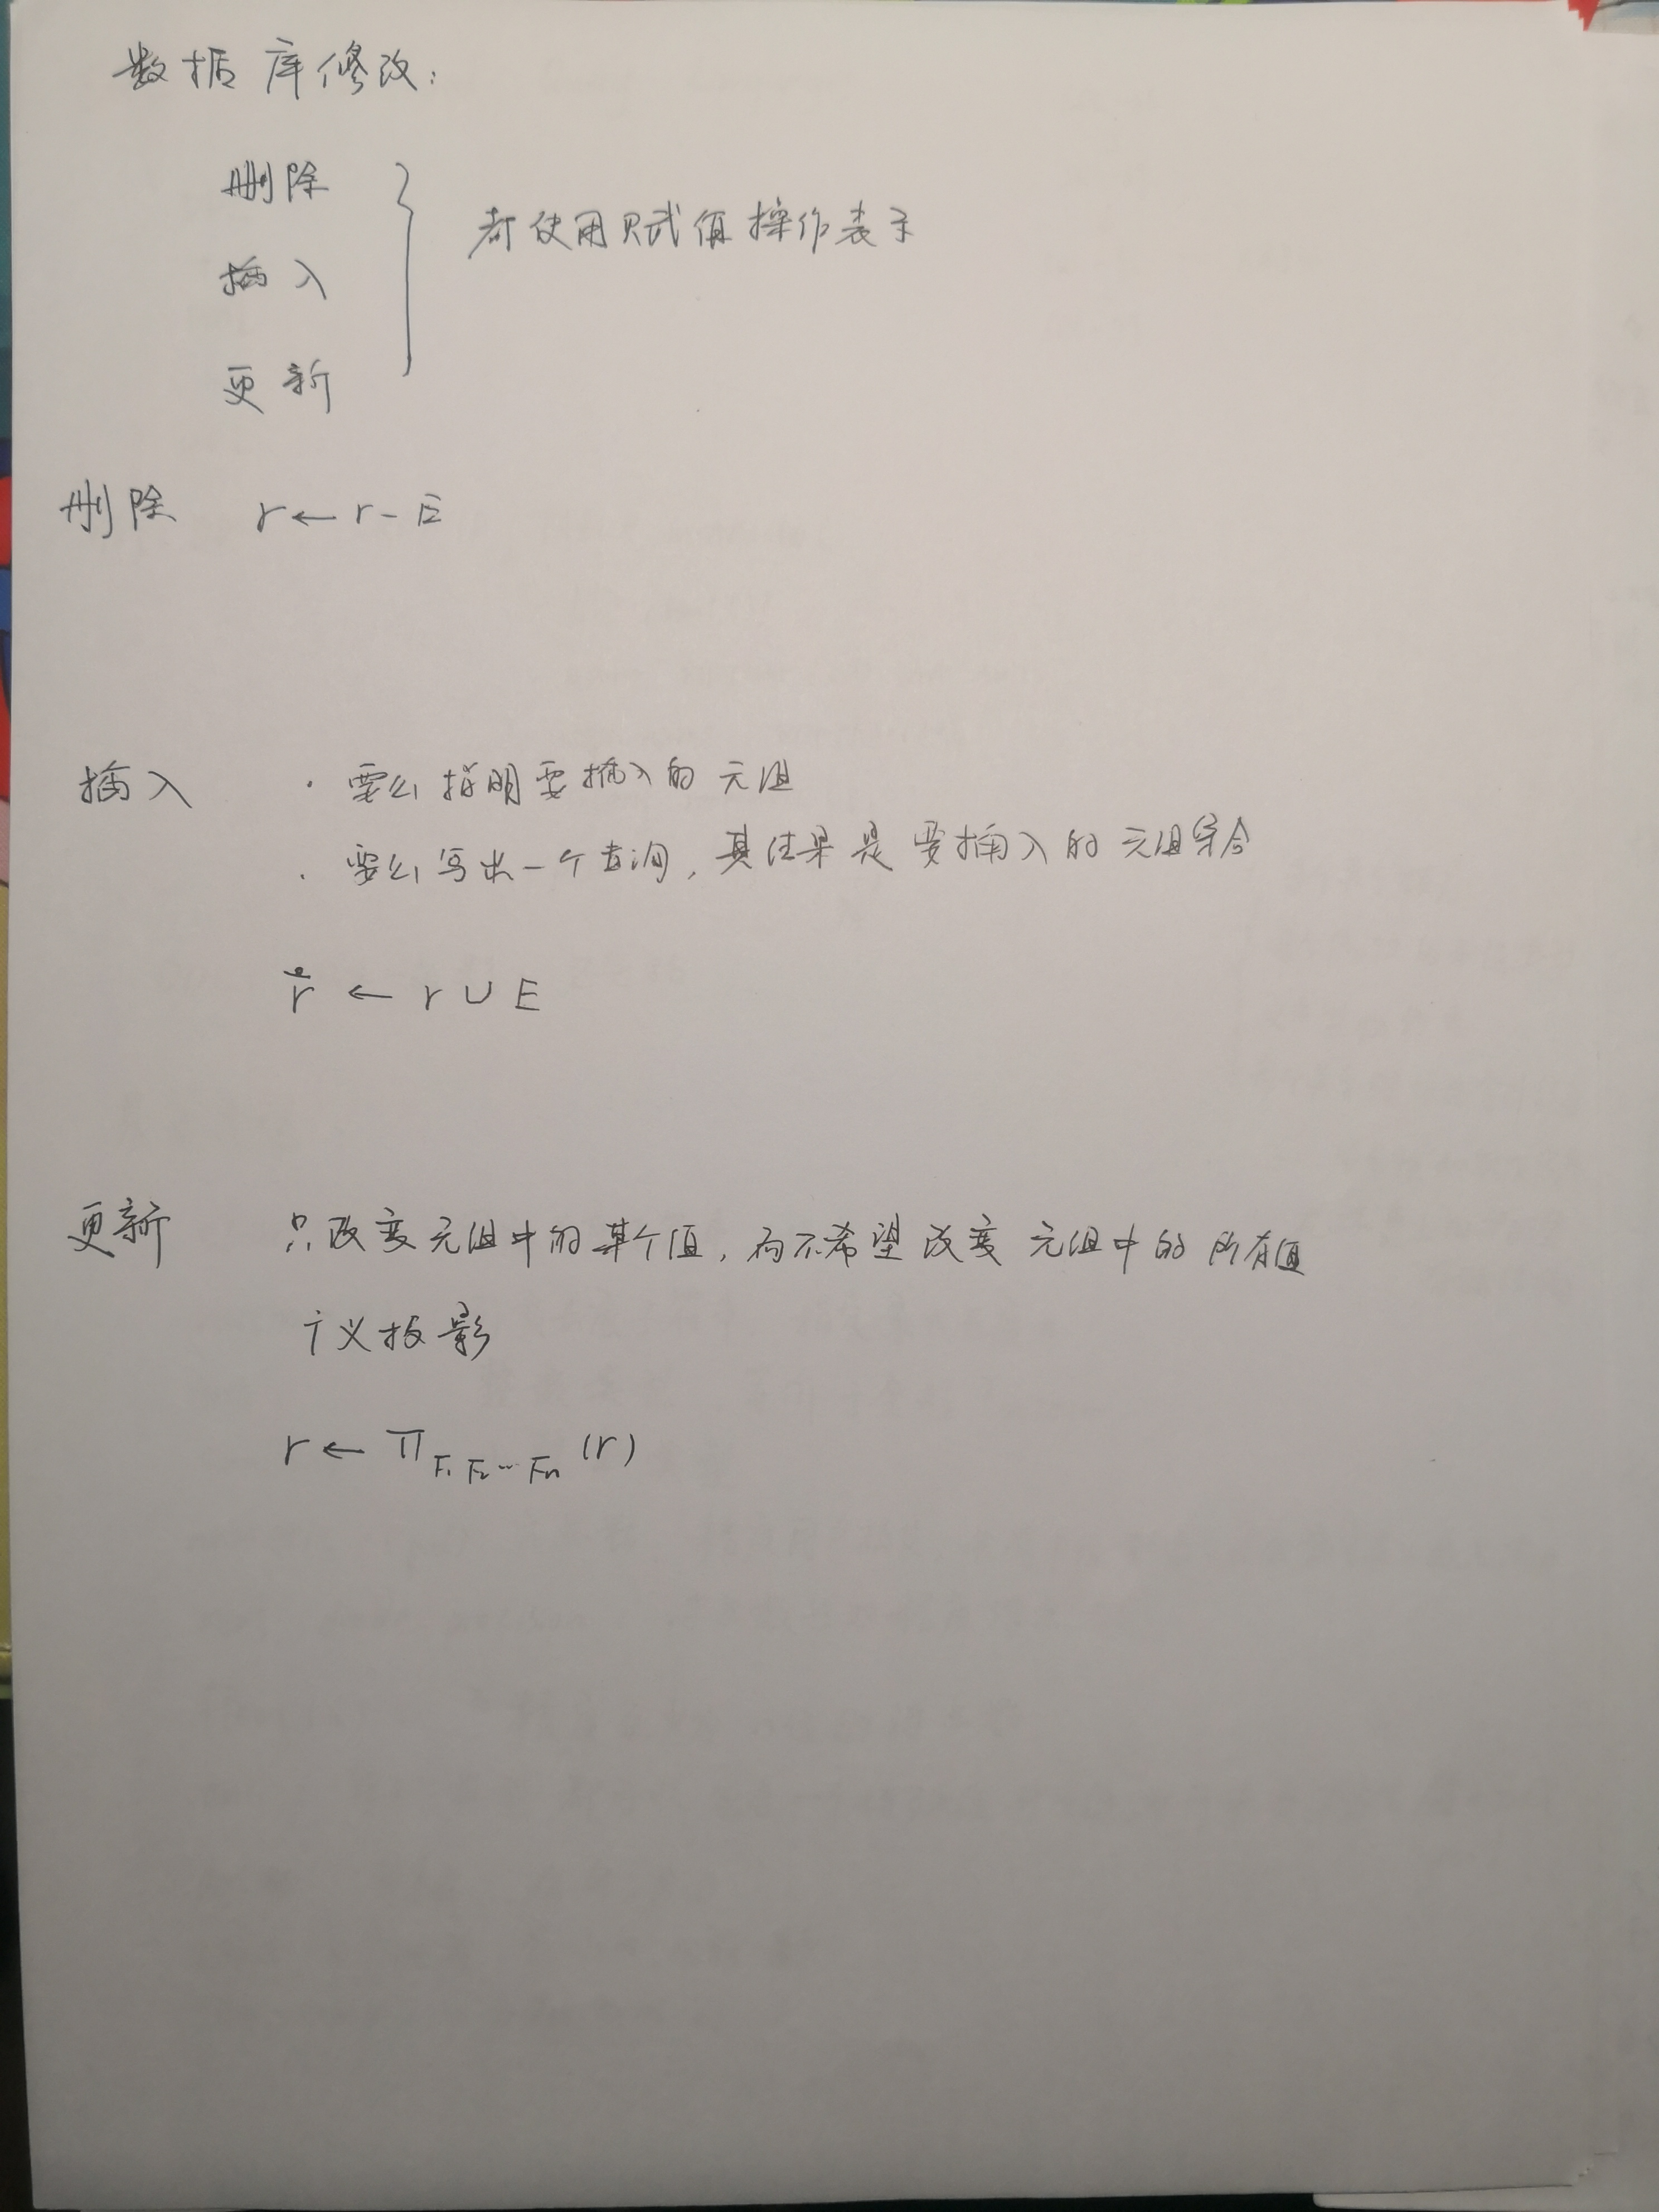 数据库修改：
删除
插入
更新
都使用赋值操作表示
删除 r ← r - E
插入 · 要么指明要插入的元组
· 要么写出一个查询，其结果是要插入的元组集合
r ← r ∪ E
更新 只改变元组中的某个值，而不希望改变元组中的所有值
广义投影
r ← Π F₁ F₂ ... Fn (r)